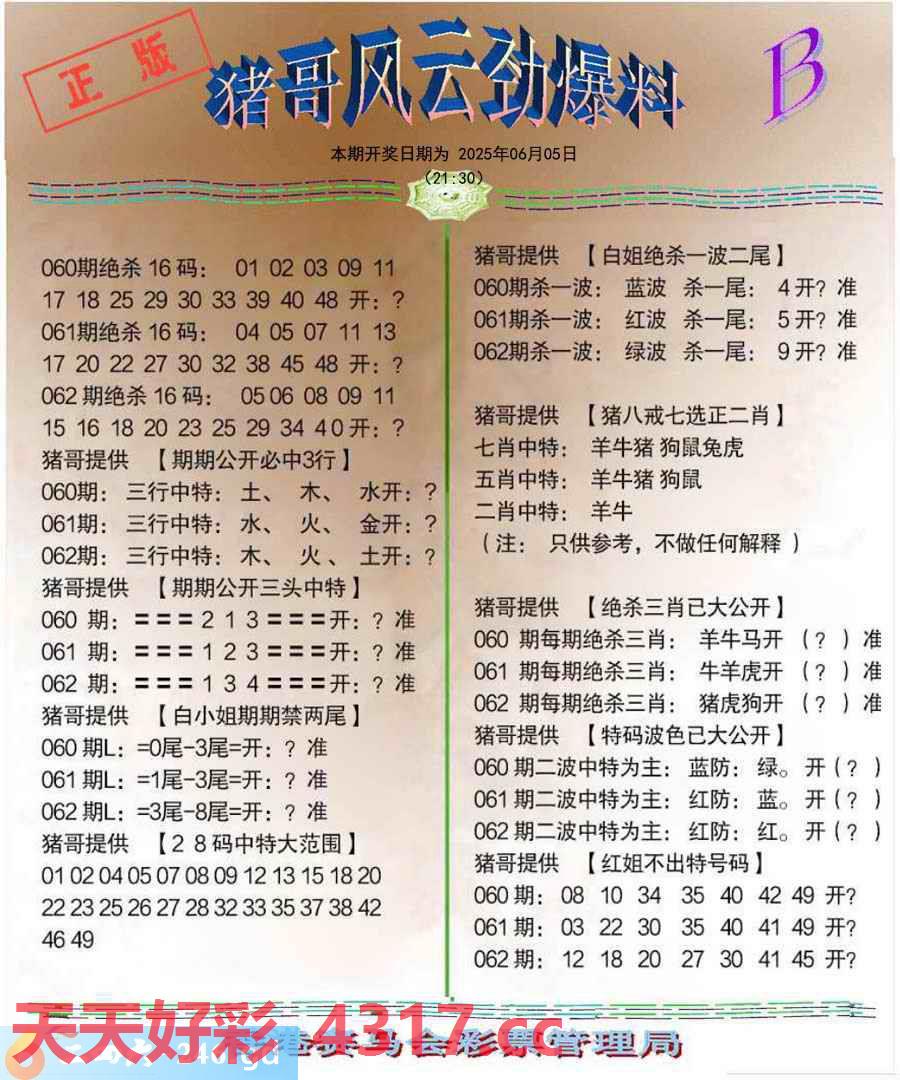 正版
猪哥风云劲爆料
B
本期开奖日期为 2025年06月05日
(21:30)
060期绝杀 16 码： 01 02 03 09 11
17 18 25 29 30 33 39 40 48 开：?
061期绝杀 16 码： 04 05 07 11 13
17 20 22 27 30 32 38 45 48 开：?
062 期绝杀 16 码： 05 06 08 09 11
15 16 18 20 23 25 29 34 4 0 开：?
猪哥提供 【期期公开必中3行】
060期： 三行中特：土、 木、 水开：?
061期： 三行中特：水、 火、 金开：?
062期： 三行中特：木、 火 、土开：?
猪哥提供 【期期公开三头中特】
060 期：＝＝＝ 2 1 3 ＝＝＝开：? 准
061 期：＝＝＝ 1 2 3 ＝＝＝开：? 准
062 期：＝＝＝ 1 3 4 ＝＝＝开：? 准
猪哥提供 【白小姐期期禁两尾】
060 期L：=0尾-3尾=开：? 准
061 期L：=1尾-3尾=开：? 准
062 期L：=3尾-8尾=开：? 准
猪哥提供 【2 8 码中特大范围】
01 02 04 05 07 08 09 12 13 15 18 20
22 23 25 26 27 28 32 33 35 37 38 42
46 49
猪哥提供 【白姐绝杀一波二尾】
060期杀一波： 蓝波 杀一尾： 4 开? 准
061期杀一波： 红波 杀一尾： 5 开? 准
062期杀一波： 绿波 杀一尾： 9 开? 准
猪哥提供 【猪八戒七选正二肖】
七肖中特： 羊牛猪 狗鼠兔虎
五肖中特： 羊牛猪 狗鼠
二肖中特： 羊牛
（注： 只供参考，不做任何解释 ）
猪哥提供 【绝杀三肖已大公开】
060 期每期绝杀三肖： 羊牛马开 （? ）准
061 期每期绝杀三肖： 牛羊虎开 （? ）准
062 期每期绝杀三肖： 猪虎狗开 （? ）准
猪哥提供 【特码波色已大公开】
060 期二波中特为主：蓝防：绿。开 (? )
061 期二波中特为主：红防：蓝。开 (? )
062 期二波中特为主：红防：红。开 (? )
猪哥提供 【红姐不出特号码】
060 期： 08 10 34 35 40 42 49 开?
061 期： 03 22 30 35 40 41 49 开?
062 期： 12 18 20 27 30 41 45 开?
天天好彩 4317.cc
港赛马会彩票管理局